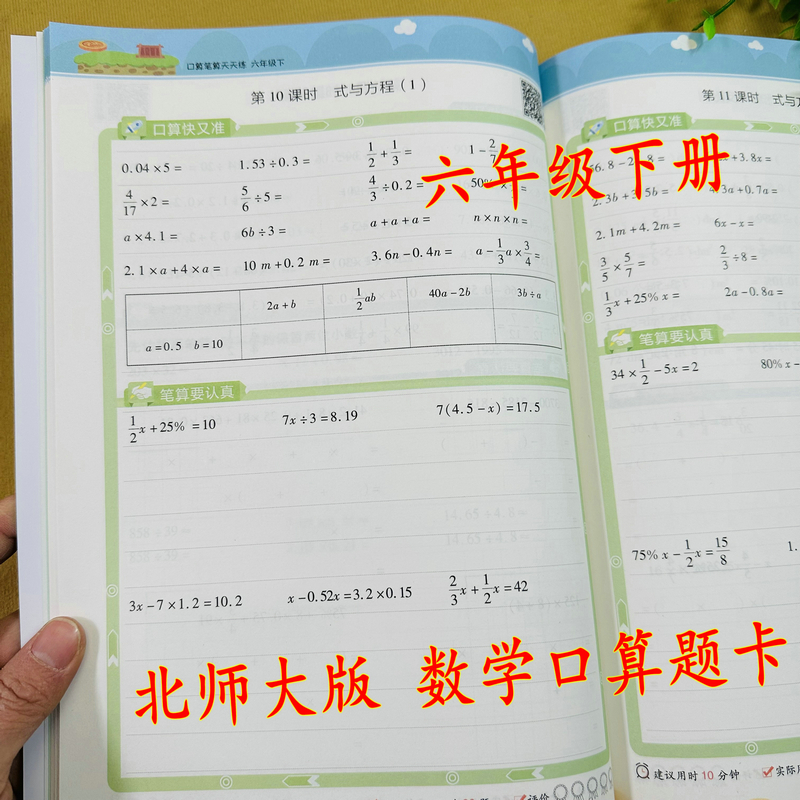 口算笔算天天练 六年级下
第10课时 式与方程(1)
口算快又准
0.04×5= 1.53÷0.3= 1/2+1/3= 1-2/7
4/17×2= 5/6÷5= 4/3÷0.2= 50%
a×4.1= 6b÷3= a+a+a= n×n×n=
2.1×a+4×a= 10m+0.2m= 3.6n-0.4n= a-1/3a×3/4=
2a+b 1/2ab 40a-2b 3b÷a
a=0.5 b=10
笔算要认真
1/2x+25%=10 7x÷3=8.19 7(4.5-x)=17.5
3x-7×1.2=10.2 x-0.52x=3.2×0.15 2/3x+1/2x=42
第11课时 式与
口算快又准
3.8x=
2.3b+3.5b= 4.3a+0.7a=
2.1m+4.2m= 6x-x=
3/5×5/7= 2/3÷8=
1/3x+25%x= 2a-0.8a=
笔算要认真
34×1/2-5x=2 80%x-
75%x-1/2x=15/8 1.
建议用时10分钟 实际用
评价
六年级下册
北师大版 数学口算题卡